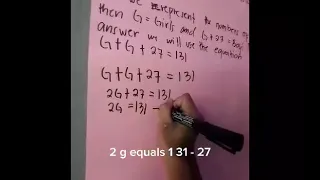 we represent the numbers of
then G = Girls and G + 27 = Boys
answer we will use the equation
G + G + 27 = 131
G + G + 27 = 131
2G + 27 = 131
2G = 131 -
2 g equals 1 31 - 27